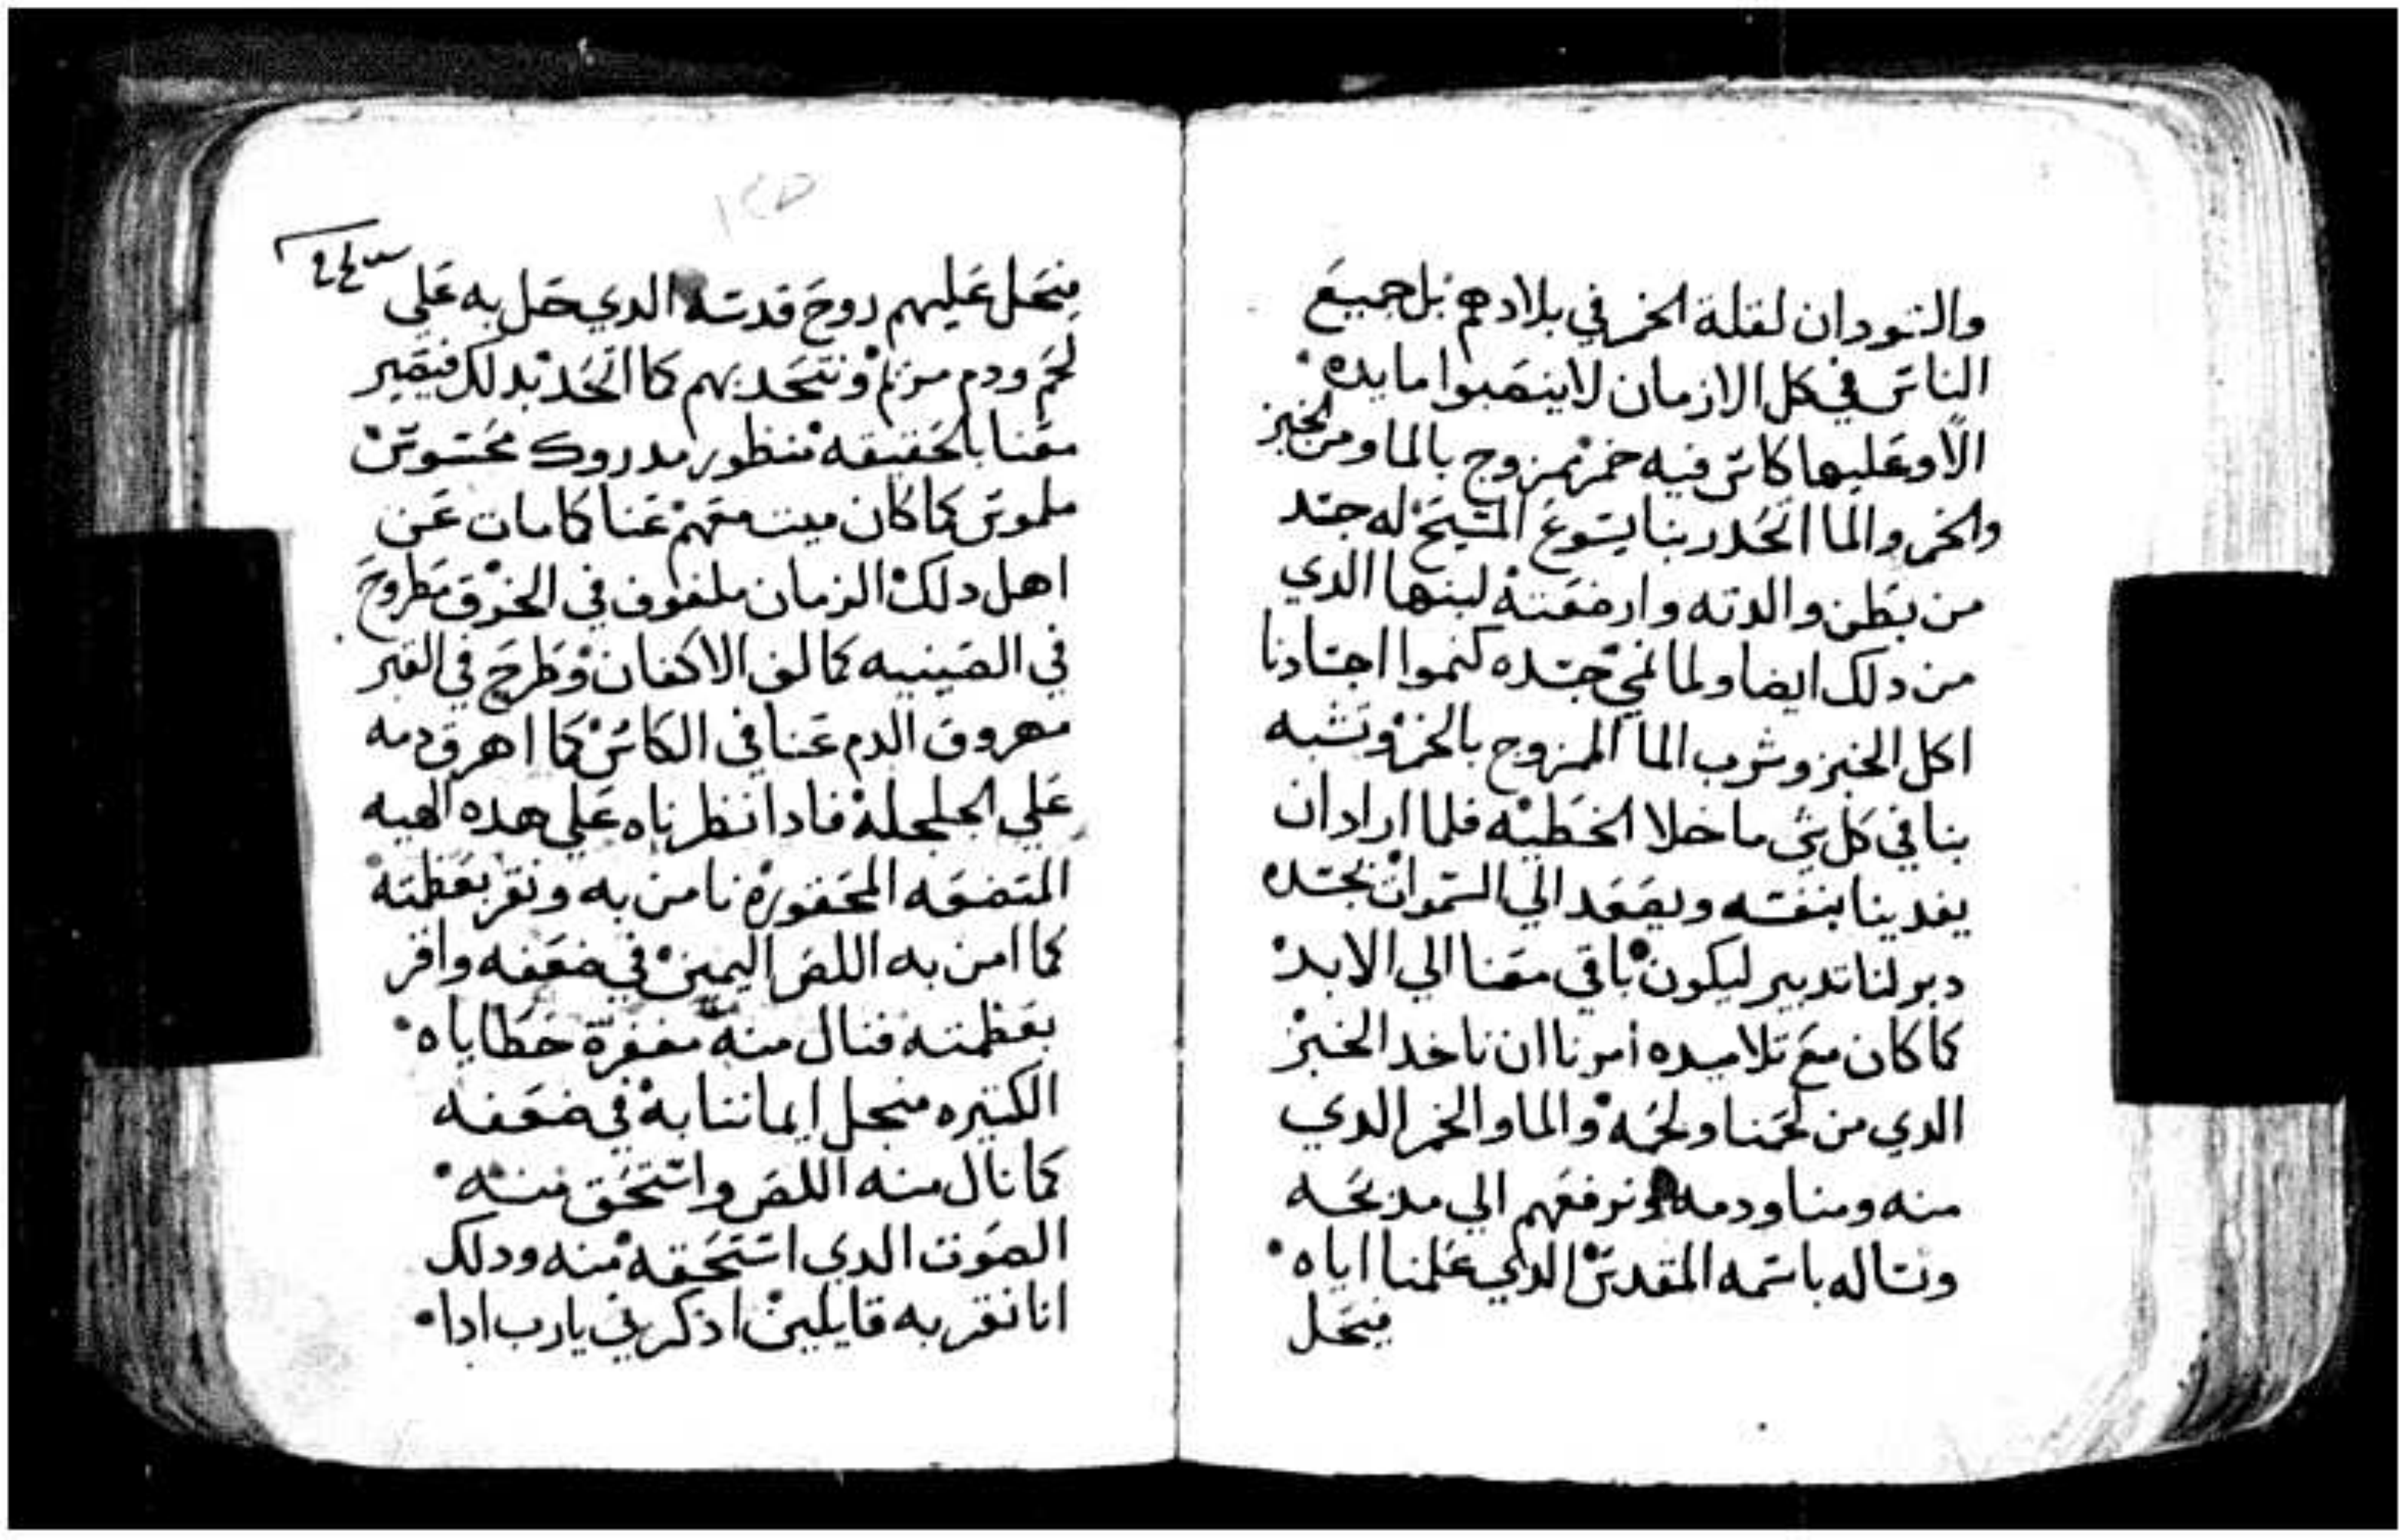 والسودان لقلة الخمر في بلادهم بل جميع
الناس في كل الازمان لا ينصبوا مايده
الا وعليها كاس فيه خمر ممزوج بالما ومن الخبز
والخمر والما اتحد ربنا يسوع المسيح له جسد
من بطن والدته وارضعته لبنها الدي
من دلك ايضا ولما نمي جسده كنموا اجسادنا
اكل الخبز وشرب الما الممزوج بالخمر وتشبه
بنا في كل شي ما خلا الخطيه فلما اراد ان
يفدينا بنفسه ويصعد الي السموات بجسده
دبر لنا تدبير ليكون باقي معنا الي الابد
كما كان مع تلاميده امرنا ان ناخد الخبز
الدي من لحمنا ولحمه والما والخمر الدي
منه ومنا ودمه ونرفعهم الي مدبحه
ونساله باسمه المقدس الدي علمنا اياه
فيحل
فيحل عليهم روح قدسه الدي حل به علي
لحم ودم مريم ونتحد بهم كما اتحد بدلك فيصير
معنا بالحقيقه منظور مدروك محسوس
ملموس كما كان ميت معهم عنا كما مات عن
اهل دلك الزمان ملفوف في الخرق مطروح
في الصينيه كما لف الاكفان وطرح في القبر
مهروق الدم عنا في الكاس كما اهرق دمه
علي الجلجلة فادا نظرناه علي هده الهيه
المتضعه المحقورة نامن به ونقر بعظمته
كما امن به اللص اليمين في ضعفه واقر
بعظمته فنال منه مغفرة خطاياه
الكتيره منجل ايماننا به في ضعفه
كما نال منه اللص واستحق منه
الصوت الدي استحقه منه ودلك
اننا نقر به قايلين ادكرني يارب ادا